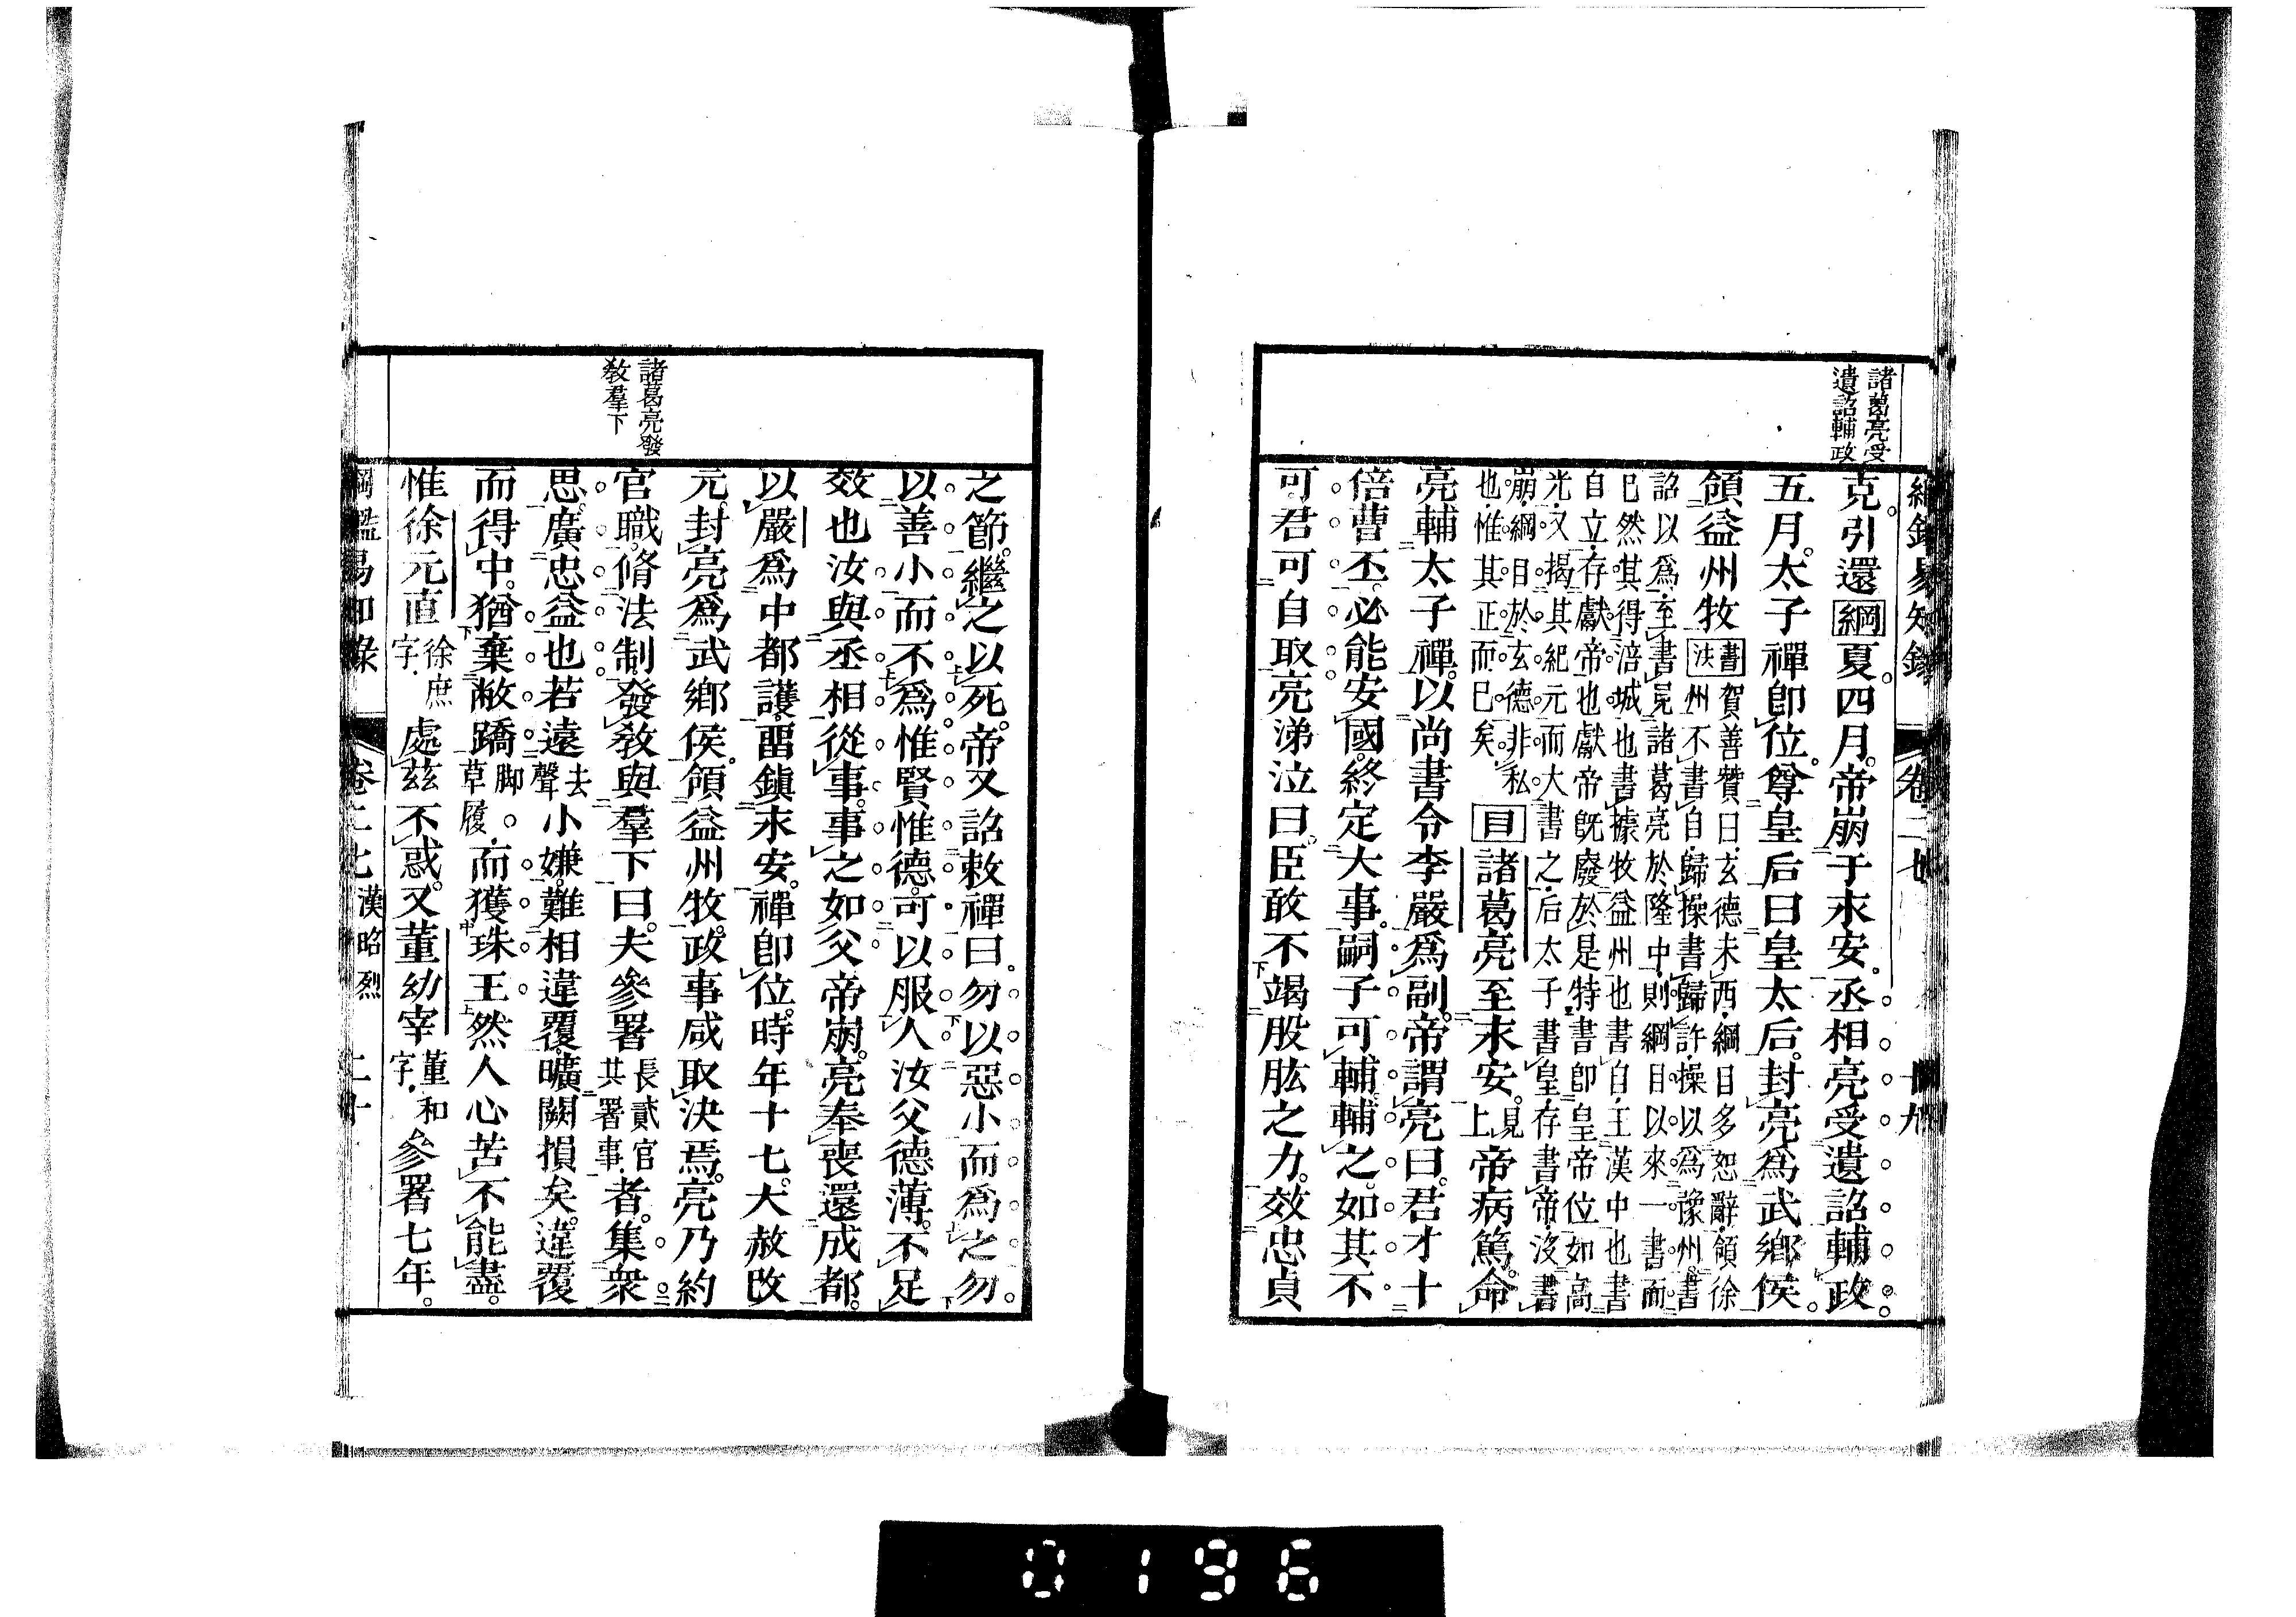 諸葛亮受
遺詔輔政
綱鑑易知錄
卷二七
十九
克。引還綱夏四月。帝崩于永安。丞相亮受遺詔輔政。
五月。太子禪卽位。尊皇后曰皇太后。封亮爲武鄉侯。
領益州牧書法
賀善贊曰。玄德未西。綱目多恕辭。領徐
州不書自。歸操書歸許。操以爲豫州。書
詔以爲。至書見諸葛亮於隆中。則綱目以來一書而
已然。其得涪城也。書據。牧益州也。書自。王漢中也。書
自立。存獻帝也。獻帝旣廢。於是特書卽皇帝位。如高
光。又揭其紀元而大書之。后太子書皇。存書帝。沒書
崩。綱目於玄德。非私
也。惟其正而已矣。
目諸葛亮至永安。見
上
帝病篤。命
亮輔太子禪。以尚書令李嚴爲副。帝謂亮曰。君才十
倍曹丕。必能安國。終定大事。嗣子可輔輔之。如其不
可。君可自取。亮涕泣曰。臣敢不竭股肱之力。效忠貞
諸葛亮發
敎羣下
之節。繼之以死。帝又詔敕禪曰。勿以惡小而爲之。勿
以善小而不爲。惟賢惟德。可以服人。汝父德薄。不足
效也。汝與丞相從事。事之如父。帝崩。亮奉喪還成都。
以嚴爲中都護。畱鎮永安。禪卽位。時年十七。大赦改
元。封亮爲武鄉侯。領益州牧。政事咸取決焉。亮乃約
官職。脩法制。發敎與羣下曰。夫參署
長貳官
其署事。
者。集衆
思。廣忠益也。若遠
去
聲
小嫌。難相違覆。曠闕損矣。違覆
而得中。猶棄敝蹻
脚。
草履。
而獲珠玉。然人心苦不能盡。
惟徐元直
徐庶
字。
處茲不惑。又董幼宰
董和
字。
參署七年。
綱鑑易知錄
卷二七
漢昭烈
二十
0196